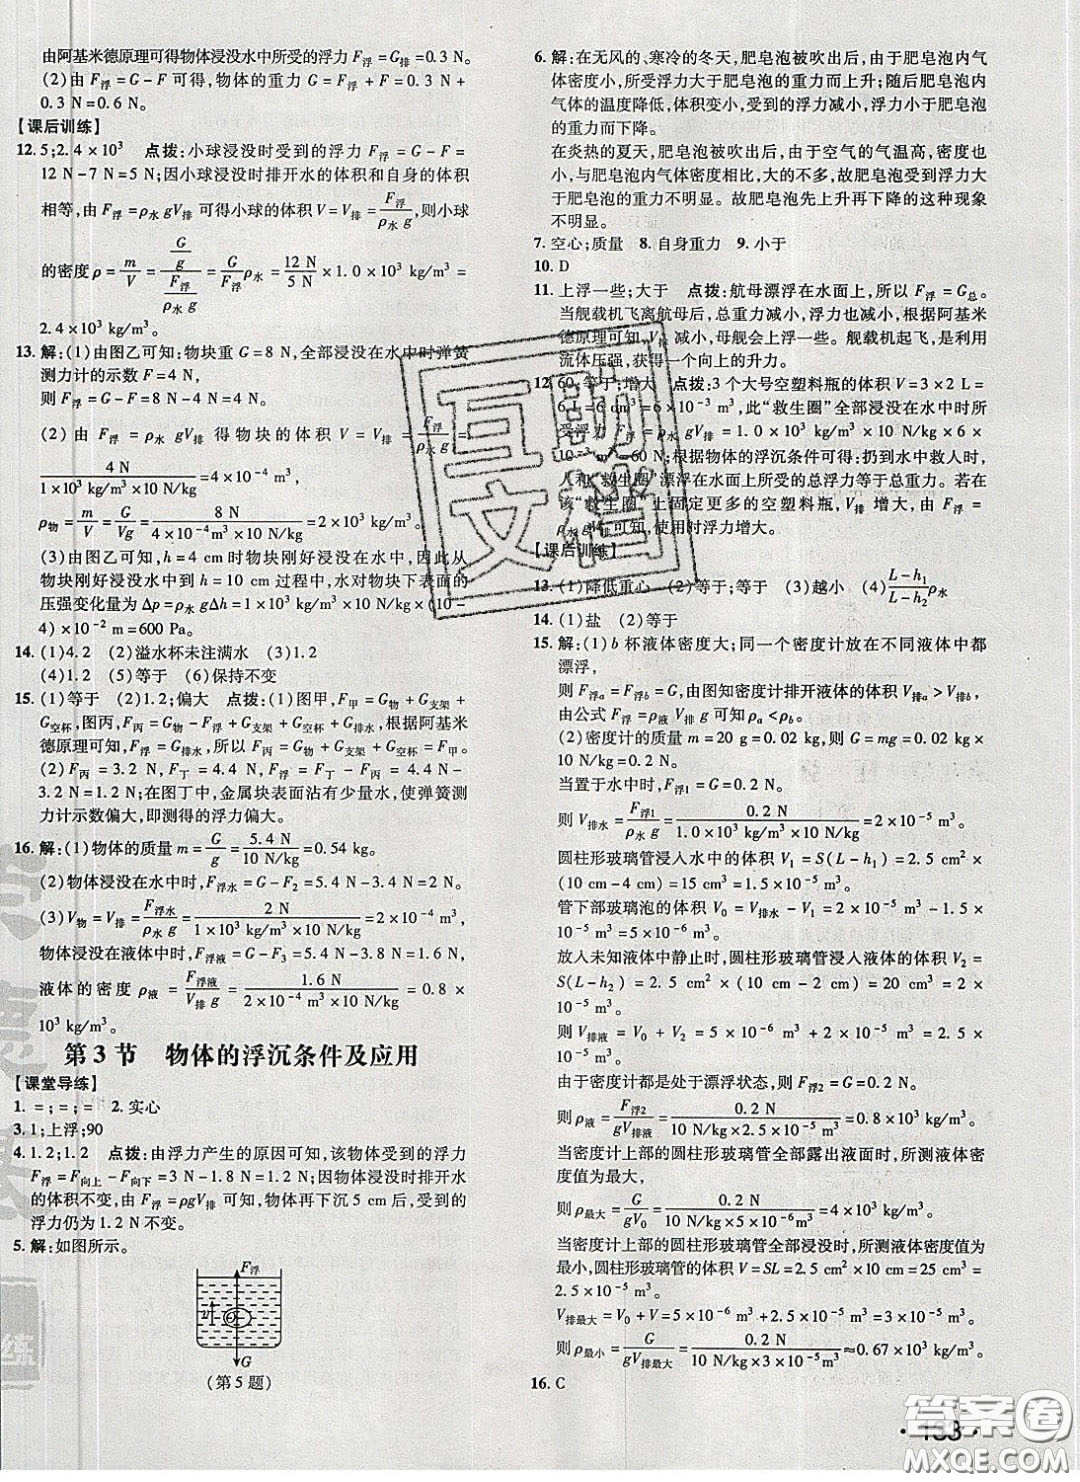 由阿基米德原理可得物体浸没水中所受的浮力 F浮=G排=0.3 N。
(2)由 F浮=G-F 可知,物体的重力 G=F浮+F=0.3 N+
0.3 N=0.6 N。
【课后训练】
12. 5;2.4×10³ 点拨:小球浸没时受到的浮力 F浮=G-F=
12 N-7 N=5 N;因小球浸没时排开水的体积和自身的体积
相等,由 F浮=ρ水 gV排 可得小球的体积 V=V排=F浮/(ρ水 g),则小球
的密度 ρ=m/V=(G/g)/(F浮/(ρ水 g))=G/F浮 ρ水=12 N/5 N×1.0×10³ kg/m³=
2.4×10³ kg/m³。
13. 解:(1)由图乙可知:物块重 G=8 N,全部浸没在水中时弹簧
测力计的示数 F=4 N,
则 F浮=G-F=8 N-4 N=4 N。
(2)由 F浮=ρ水 gV排 得物块的体积 V=V排=F浮/(ρ水 g)=
4 N/(1×10³ kg/m³×10 N/kg)=4×10⁻⁴ m³,
ρ物=m/V=G/(Vg)=8 N/(4×10⁻⁴ m³×10 N/kg)=2×10³ kg/m³。
(3)由图乙可知,h=4 cm时物块刚好浸没在水中,从
物块刚好浸没水中到 h=10 cm过程中,水对物块下表面的
压强变化量为 Δp=ρ水gΔh=1×10³ kg/m³×10 N/kg×(10-
4)×10⁻² m=600 Pa。
14. (1)4.2 (2)溢水杯未注满水 (3)1.2
(4)1.2 (5)等于 (6)保持不变
15. (1)等于 (2)1.2;偏大 点拨:(1)图甲,F甲=G物+G支架+
G空杯,图丙,F丙=G物-F浮+G支架+G空杯+G排水,根据阿基米
德原理可知,F浮=G排水,所以 F丙=G物+G支架+G空杯=F甲。
(2)F丙=3.2 N,F丁=4.4 N,所以 F浮=F丁-F丙=4.4 N-
3.2 N=1.2 N;在图丁中,金属块表面沾有少量水,使弹簧测
力计示数偏大,即测得的浮力偏大。
16. 解:(1)物体的质量 m=G/g=5.4 N/(10 N/kg)=0.54 kg。
(2)物体浸没在水中时,F浮水=G-F₂=5.4 N-3.4 N=2 N。
(3)V物=V排=F浮水/(ρ水 g)=2 N/(1×10³ kg/m³×10 N/kg)=2×10⁻⁴ m³,
物体浸没在液体中时,F浮液=G-F₃=5.4 N-3.8 N=1.6 N,
液体的密度 ρ液=F浮液/(V排 g)=1.6 N/(2×10⁻⁴ m³×10 N/kg)=0.8×
10³ kg/m³。
第3节 物体的浮沉条件及应用
【课堂导练】
1. =;=;= 2. 实心
3. 1;上浮;90
4. 1.2;1.2 点拨:由浮力产生的原因可知,该物体受到的浮力
F浮=F向上-F向下=3 N-1.8 N=1.2 N;因物体浸没时排开水
的体积不变,由 F浮=ρgV排 可知,物体再下沉 5 cm后,受到的
浮力仍为1.2 N不变。
5. 解:如图所示。
F浮
v
O
G
(第5题)
6. 解:在无风的、寒冷的冬天,肥皂泡被吹出后,由于肥皂泡内气
体密度小,所受浮力大于肥皂泡的重力而上升;随后肥皂泡内
气体的温度降低,体积变小,受到的浮力减小,浮力小于肥皂泡
的重力而下降。
在炎热的夏天,肥皂泡被吹出后,由于空气的气温高,密度也
小,与肥皂泡内气体密度相比,大的不多,故肥皂泡受到浮力大
于肥皂泡的重力不明显。故肥皂泡先上升再下降的这种现象
不明显。
7. 空心;质量 8. 自身重力 9. 小于
10. D
11. 上浮一些;大于 点拨:航母漂浮在水面上,所以 F浮=G总。
当舰载机飞离航母后,总重力减小,浮力也减小,根据阿基米
德原理可知,V排 减小,母舰会上浮一些。舰载机起飞,是利用
流体压强,获得一个向上的升力。
12. 60;等于;增大 点拨:3个大号空塑料瓶的体积 V=3×2 L=
6 L=6 dm³=6×10⁻³ m³,此“救生圈”全部浸没在水中时所
受浮力 F浮=ρ水gV排=1.0×10³ kg/m³×10 N/kg×6×
10⁻³ m³=60 N;根据物体的浮沉条件可得:扔到水中救人时,
人和“救生圈”漂浮在水面上所受的总浮力等于总重力。若在
该“救生圈”上固定更多的空塑料瓶,V排 增大,根据 F浮=
ρ水gV排 可知,使用时浮力增大。
【课后训练】
13. (1)降低重心 (2)等于;等于 (3)越小 (4)(L-h₁)/(L-h₂)ρ水
14. (1)盐 (2)等于
15. 解:(1)b 杯液体密度大;同一个密度计放在不同液体中都
漂浮,
则 F浮a=F浮b=G,由图知密度计排开液体的体积 V排a>V排b,
由公式 F浮=ρ液 V排 g 可知 ρa<ρb。
(2)密度计的质量 m=20 g=0.02 kg,则 G=mg=0.02 kg
×10 N/kg=0.2 N。
当置于水中时,F浮1=G=0.2 N,
则 V排水=F浮1/(ρ水 g)=0.2 N/(1.0×10³ kg/m³×10 N/kg)=2×10⁻⁵ m³。
圆柱形玻璃管浸入水中的体积 V₁=S(L-h₁)=2.5 cm²×
(10 cm-4 cm)=15 cm³=1.5×10⁻⁵ m³。
管下部玻璃泡的体积 V₀=V排水-V₁=2×10⁻⁵ m³-1.5×
10⁻⁵ m³=5×10⁻⁶ m³。
放入未知液体中静止时,圆柱形玻璃管浸入液体的体积 V₂=
S(L-h₂)=2.5 cm²×(10 cm-2 cm)=20 cm³=2×
10⁻⁵ m³。
则 V排液=V₀+V₂=5×10⁻⁶ m³+2×10⁻⁵ m³=2.5×
10⁻⁵ m³。
由于密度计都是处于漂浮状态,则 F浮2=G=0.2 N。
则 ρ液=F浮2/(gV排液)=0.2 N/(10 N/kg×2.5×10⁻⁵ m³)=0.8×10³ kg/m³。
当密度计上部的圆柱形玻璃管全部露出液面时,所测液体密
度值为最大,
则 ρ最大=G/(gV₀)=0.2 N/(10 N/kg×5×10⁻⁶ m³)=4×10³ kg/m³。
当密度计上部的圆柱形玻璃管全部浸没时,所测液体密度值为
最小,圆柱形玻璃管的体积 V=SL=2.5 cm²×10 cm=25 cm³=
2.5×10⁻⁵ m³。
V排最大=V₀+V=5×10⁻⁶ m³+2.5×10⁻⁵ m³=3×10⁻⁵ m³。
则 ρ最小=G/(gV排最大)=0.2 N/(10 N/kg×3×10⁻⁵ m³)≈0.67×10³ kg/m³。
16. C
互助
文档
答案圈
MXQE.COM